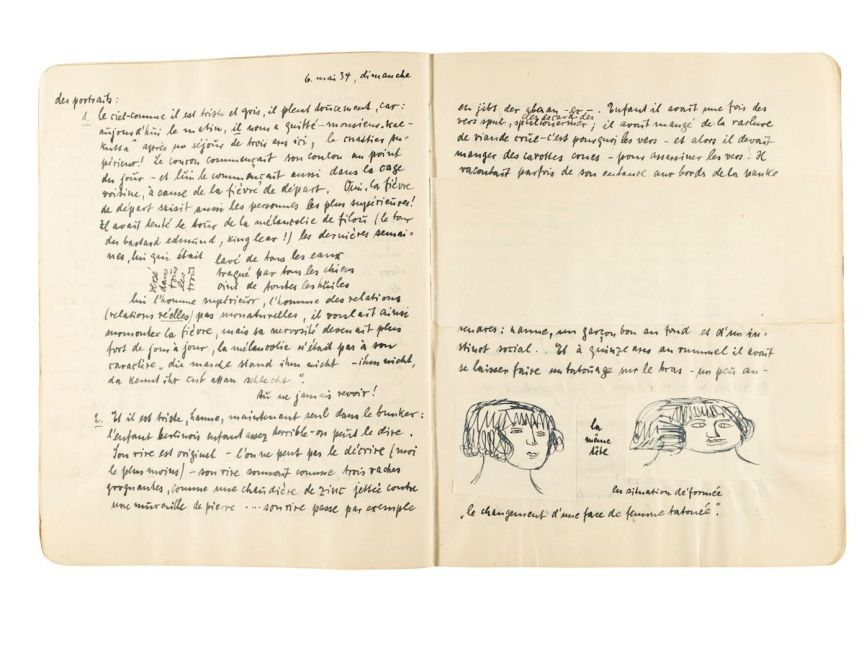 6. mai 34, dimanche
des portraits:
1. le ciel-comme il est triste et gris, il pleut doucement, car:
aujourd'hui le matin, il nous a quitté-monsieur
après un séjour de trois ans ici, le
périeur! Le coucou commençait son coulou au point
du jour - et lui le commençait aussi dans la cage
voisine, à cause de la fièvre de départ. Oui, la fièvre
de départ saisit aussi les personnes les plus supérieures!
Il avait tenté le tour de la mélancolie de filou (le tour
du bastard edmund, king lear!) les dernières semai-
nes, lui qui était lavé de tous les eaux
traqué par tous les chiens
oint de toutes les huiles
dans
tous
les
trous
lui l'homme supérieur, l'homme des relations
(relations réelles) pas surnaturelles, il voulait ainsi
surmonter la fièvre, mais sa nervosité devenait plus
fort de jour à jour, la mélancolie n'était pas à son
caractère „die maske stand ihm nicht - ihm nicht,
da kennt ihr schlecht".
Au ne jamais revoir!
2. Et il est triste, hanne, maintenant seul dans le bunker:
l'enfant berlinois enfant assez terrible-on peut le dire.
Son rire est originel - l'on ne peut pas le décrire (moi
le plus moins) - son rire sonnait comme trois vaches
grognantes, comme une chaudière de zinc jettée contre
une muraille de pierre .... son rire passe par exemple
en jibs der -er-. Enfant il avait une fois des
vers spul, spulwürmer; il avait mangé de la raclure
de viande crue-c'est pourquoi les vers - et alors il devait
manger des carottes crues - pour assassiner les vers. Il
racontait parfois de son enfance aux bords de la panke
hanne, un garçon bon au fond et d'un in-
stinct social.. Et à quinze ans au rummel il avait
se laisser faire un tatouage sur le bras - un peu au-
la
même
tête
en situation déformée
„le changement d'une face de femme tatouée".